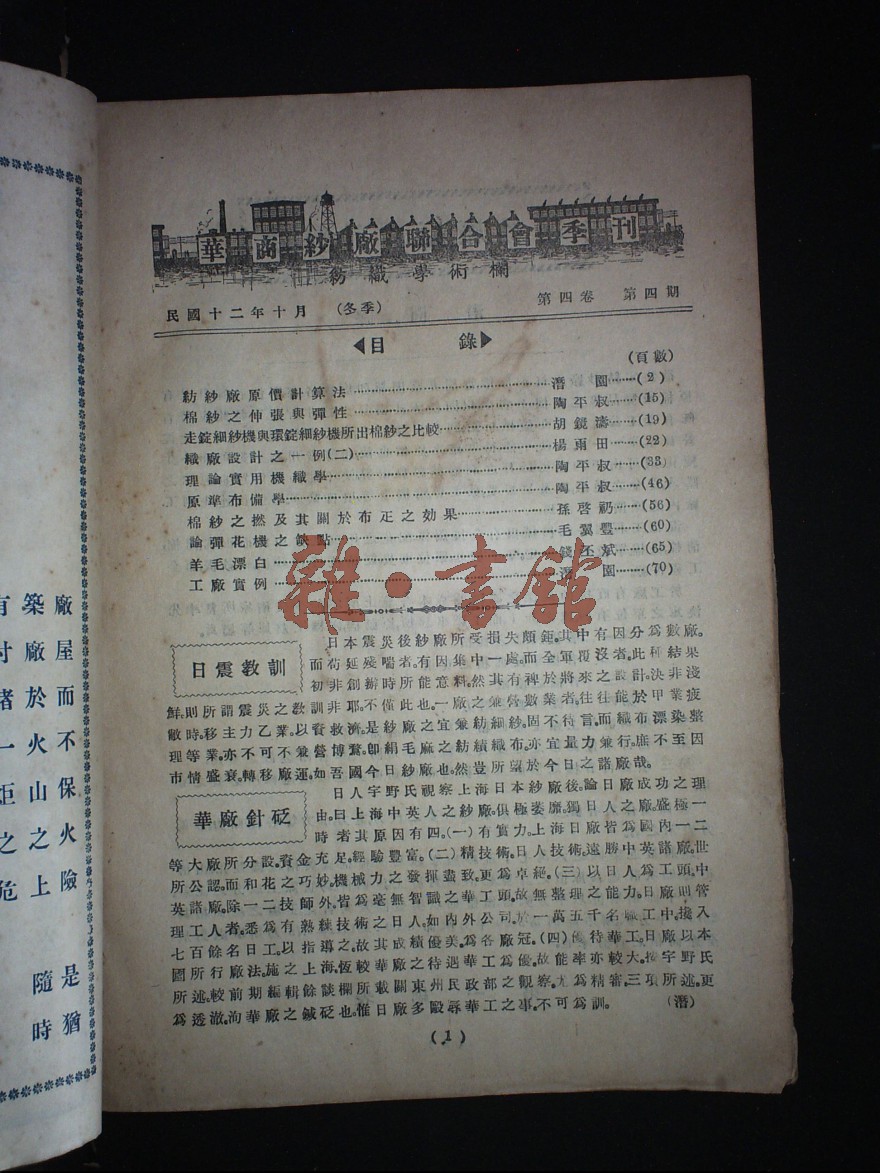 華商紗廠聯合會季刊
紡織學術欄
民國十二年十月 (冬季) 第四卷 第四期
◀目 錄▶
(頁數)
紡紗廠原價計算法……潛 園……(2)
棉紗之伸張與彈性……陶平叔……(15)
走錠細紗機與環錠細紗機所出棉紗之比較……胡鏡濤……(19)
織廠設計之一例(二)……楊雨田……(22)
理論實用機織學……陶平叔……(33)
原準布備學……陶平叔……(46)
棉紗之撚及其關於布疋之効果……孫啓礽……(56)
論彈花機之缺點……毛翼豐……(60)
羊毛漂白……錢丕斌……(65)
工廠實例……潛 園……(70)
雜·書館
日震教訓
日本震災後紗廠所受損失頗鉅。其中有因分爲數廠。
而苟延殘喘者。有因集中一處。而全軍覆沒者。此種結果
初非創辦時所能意料。然其有裨於將來之設計。決非淺
鮮。則所謂震災之教訓非耶。不僅此也。一廠之兼營數業者。往往能於甲業疲
敝時。移主力乙業。以資救濟。是紗廠之宜兼紡細紗。固不待言。而織布漂染整
理等業。亦不可不兼營博騖。卽絹毛麻之紡績織布。亦宜量力兼行。庶不至因
市情盛衰。轉移廠運。如吾國今日紗廠也。然豈所望於今日之諸廠哉。
華廠針砭
日人宇野氏視察上海日本紗廠後。論日廠成功之理
由。曰上海中英人之紗廠。俱極萎靡。獨日人之廠。盛極一
時者其原因有四。(一)有實力。上海日廠皆爲國內一二
等大廠所分設。資金充足。經驗豐富。(二)精技術。日人技術。遠勝中英諸廠。世
所公認。而和花之巧妙。機械力之發揮盡致。更爲卓經。(三)以日人爲工頭。中
英諸廠。除一二技師外。皆爲毫無智識之華工頭。故無整理之能力。日廠則管
理工人者。悉爲有熟練技術之日人。如內外公司。於一萬五千名職工中。攙入
七百餘名日工。以指導之。故其成績優美。爲各廠冠。(四)優待華工。日廠以本
國所行廠法。施之上海。恆較華廠之待遇華工爲優。故能率亦較大。按宇野氏
所述。較前期編輯餘談欄所載關東州民政部之觀察。尤爲精審。三項所述。更
爲透澈。洵華廠之鍼砭也。惟日廠多毆辱華工之事。不可爲訓。 (潛)
(1)
廠屋而不保火險 是猶
築廠於火山之上 隨時